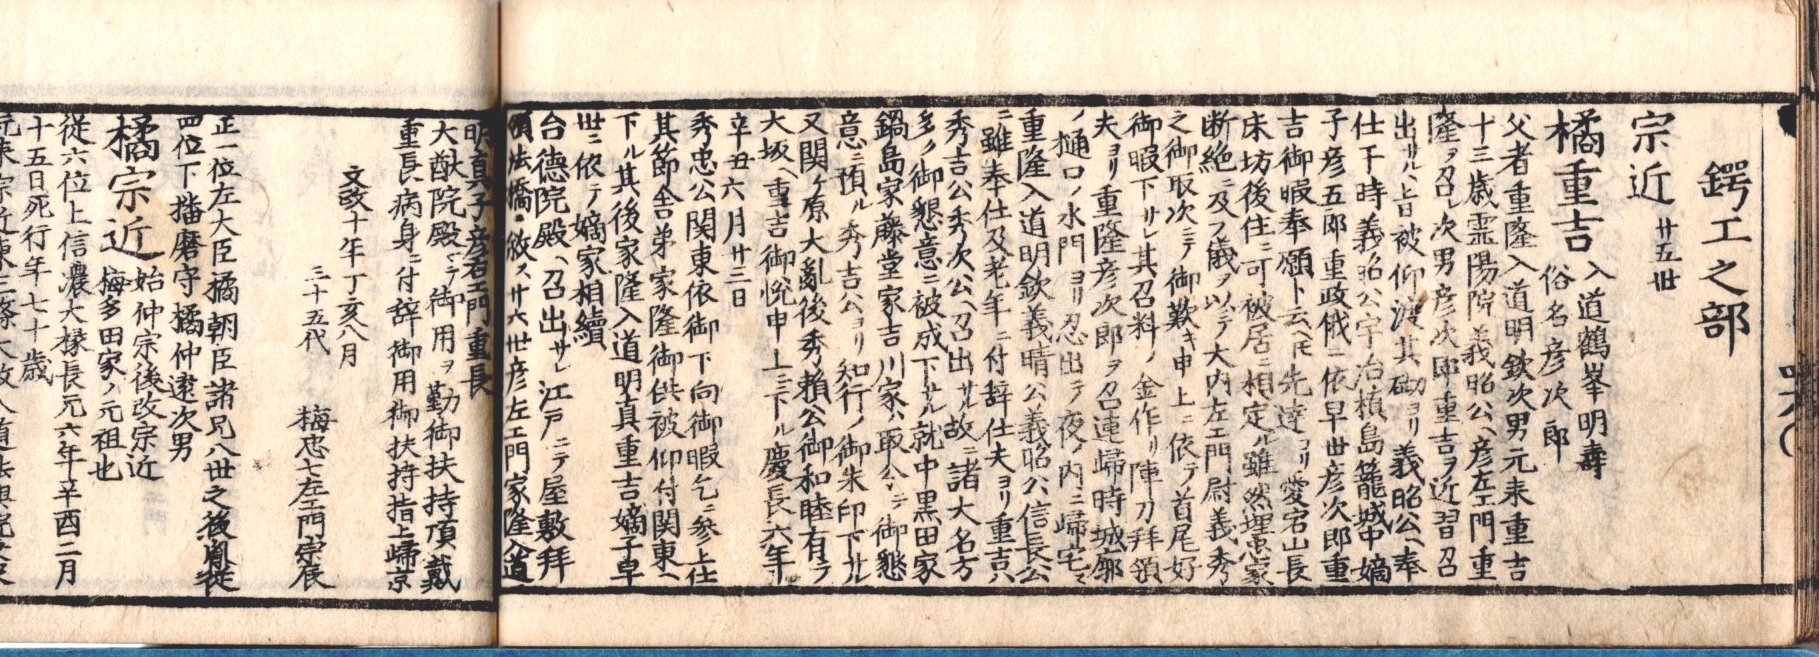 鍔工之部
宗近 廿五世
橘重吉 入道鶴峯明壽
俗名彦次郎
父者重隆入道明欽次男元来重吉
十三歳霊陽院義昭公ヘ彦左エ門重
隆ヲ召レ次男彦次郎重吉ヲ近習召
出サルヽ旨被仰渡其砌ヨリ義昭公ヘ奉
仕于時義昭公宇治槙島籠城中嫡
子彦五郎重政俄ニ依早世彦次郎重
吉御暇奉願ト云ヘ𪜈先達ヨリ愛宕山長
床坊後住ニ可被居ニ相定ル雖然埋忠家
断絶ニ及フ儀ヲ以テ大内左エ門尉義秀
之御取次ニテ御歎キ申上ニ依テ首尾好
御暇下サレ其召料ノ金作リ陣刀拝領
夫ヨリ重隆彦次郎ヲ召連帰時城廓
ノ樋口ノ水門ヨリ忍出テ夜ノ内ニ帰宅ス
重隆入道明欽義晴公義昭公信長公
ニ雖奉仕及老年ニ付辞仕夫ヨリ重吉ハ
秀吉公秀次公ヘ召出サル故ニ諸大名方
多ノ御懇意ニ被成下サル就中黒田家
鍋島家藤堂家吉川家ハ取分テ御懇
意ニ預ル秀吉公ヨリ知行ノ御朱印下サル
又関ヶ原大乱後秀頼公御和睦有テ
大坂ヘ重吉御悦申上ニ下ル慶長六年
辛丑六月廿三日
秀忠公関東依御下向御暇乞ニ参上仕
其節舎弟家隆御供被仰付関東ヘ
下ル其後家隆入道明真重吉嫡子早
世ニ依テ嫡家相續
台徳院殿ヘ召出サレ江戸ニテ屋敷拝
領法橋ニ敘ス廿六世彦左エ門家隆入道
明真子彦右エ門重長
大猷院殿ニテ御用ヲ勤御扶持頂戴
重長病身ニ付辞御用御扶持指上帰京
文政十年丁亥八月
三十五代 梅忠七左エ門宗辰
正一位左大臣橘朝臣諸兄八世之後胤従
四位下播磨守橘仲遠次男
橘宗近 始仲宗後改宗近
梅多田家ノ元祖也
従六位上信濃大掾長元六年辛酉二月
十五日死行年七十歳